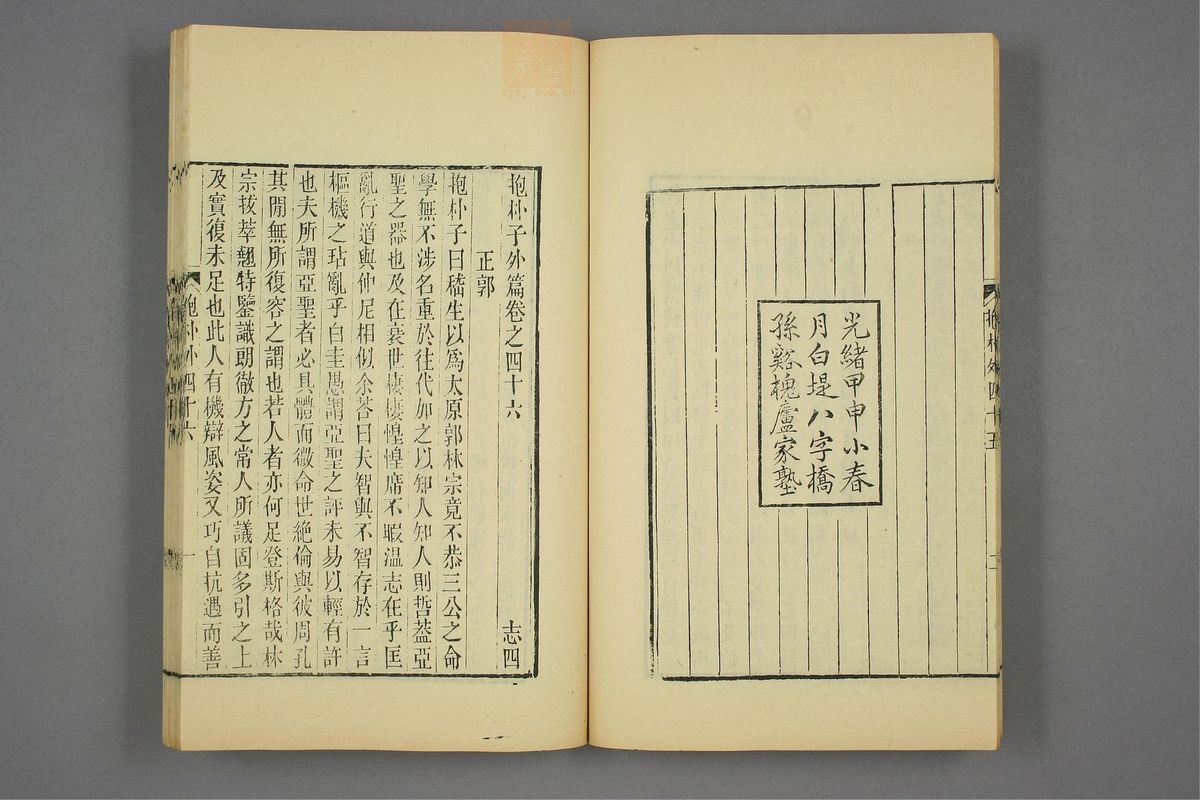 抱朴外四十五
二
光緒甲申小春
月白堤八字橋
孫谿槐廬家塾
抱朴子外篇卷之四十六
志四
正郭
抱朴子曰嵇生以爲太原郭林宗竟不恭三公之命
學無不涉名重於往代加之以知人知人則哲葢亞
聖之器也及在衰世棲棲惶惶席不暇温志在乎匡
亂行道與仲尼相似余荅曰夫智與不智存於一言
樞機之玷亂乎白圭愚謂亞聖之評未易以輕有許
也夫所謂亞聖者必具體而微命世絶倫與彼周孔
其閒無所復容之謂也若人者亦何足登斯格哉林
宗拔萃翹特鑒識朗徹方之常人所議固多引之上
及實復未足也此人有機辯風姿又巧自抗遇而善
抱朴外四十六
一
zygj.eea.cn